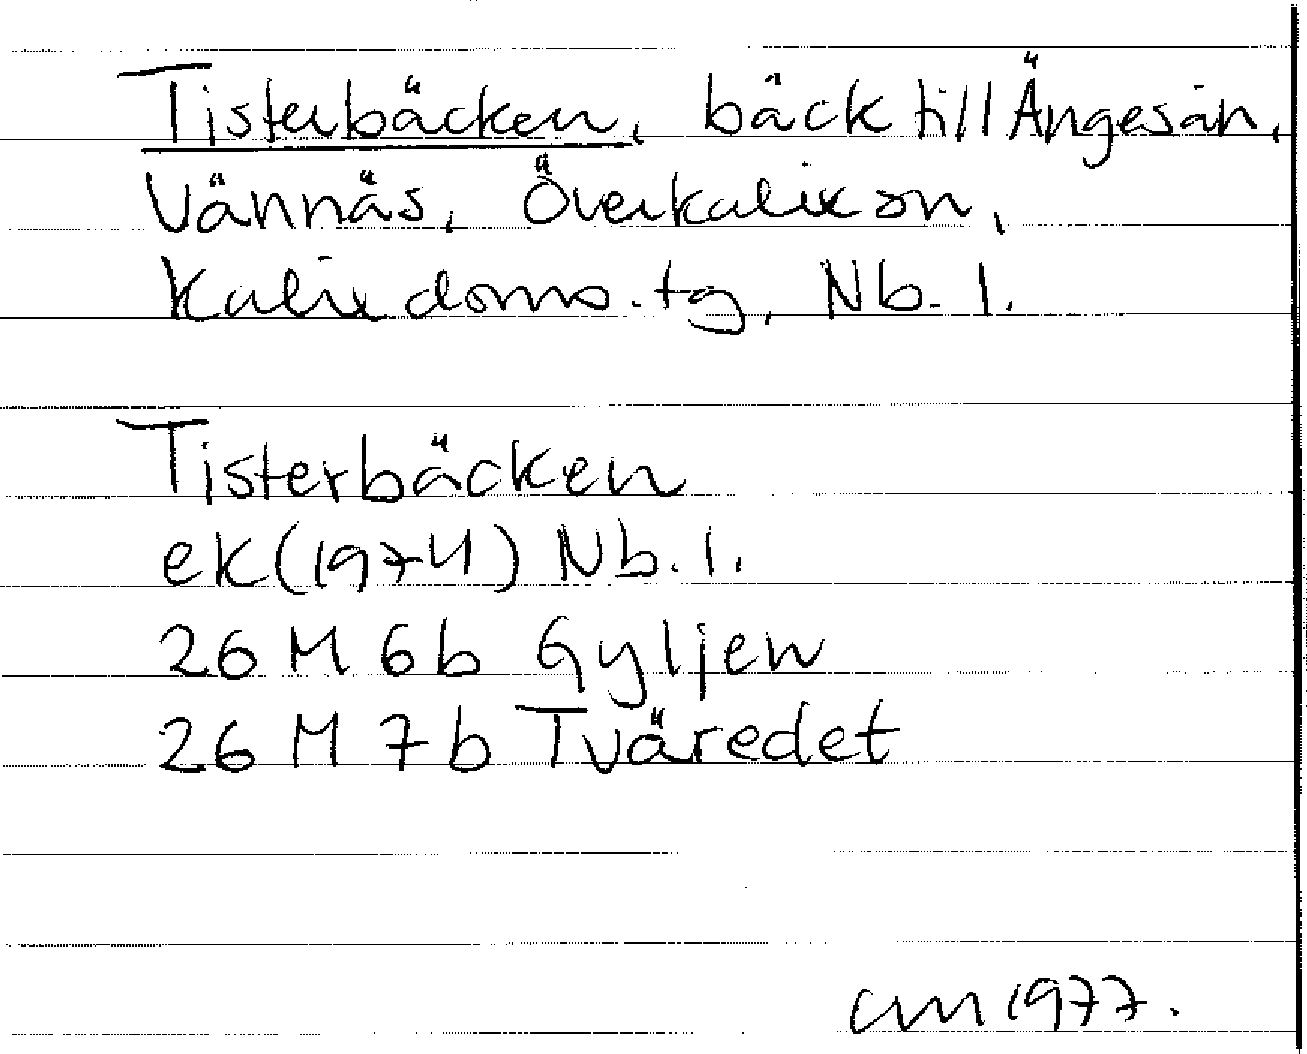 Tisterbäcken, bäck till Ängesån,
Vännäs, Överkalix sn,
Kalix doms.tg, Nb. l.
Tisterbäcken
ek (1974) Nb. l.
26 M 6b Gyljen
26 M 7b Tväredet
cm 1977.